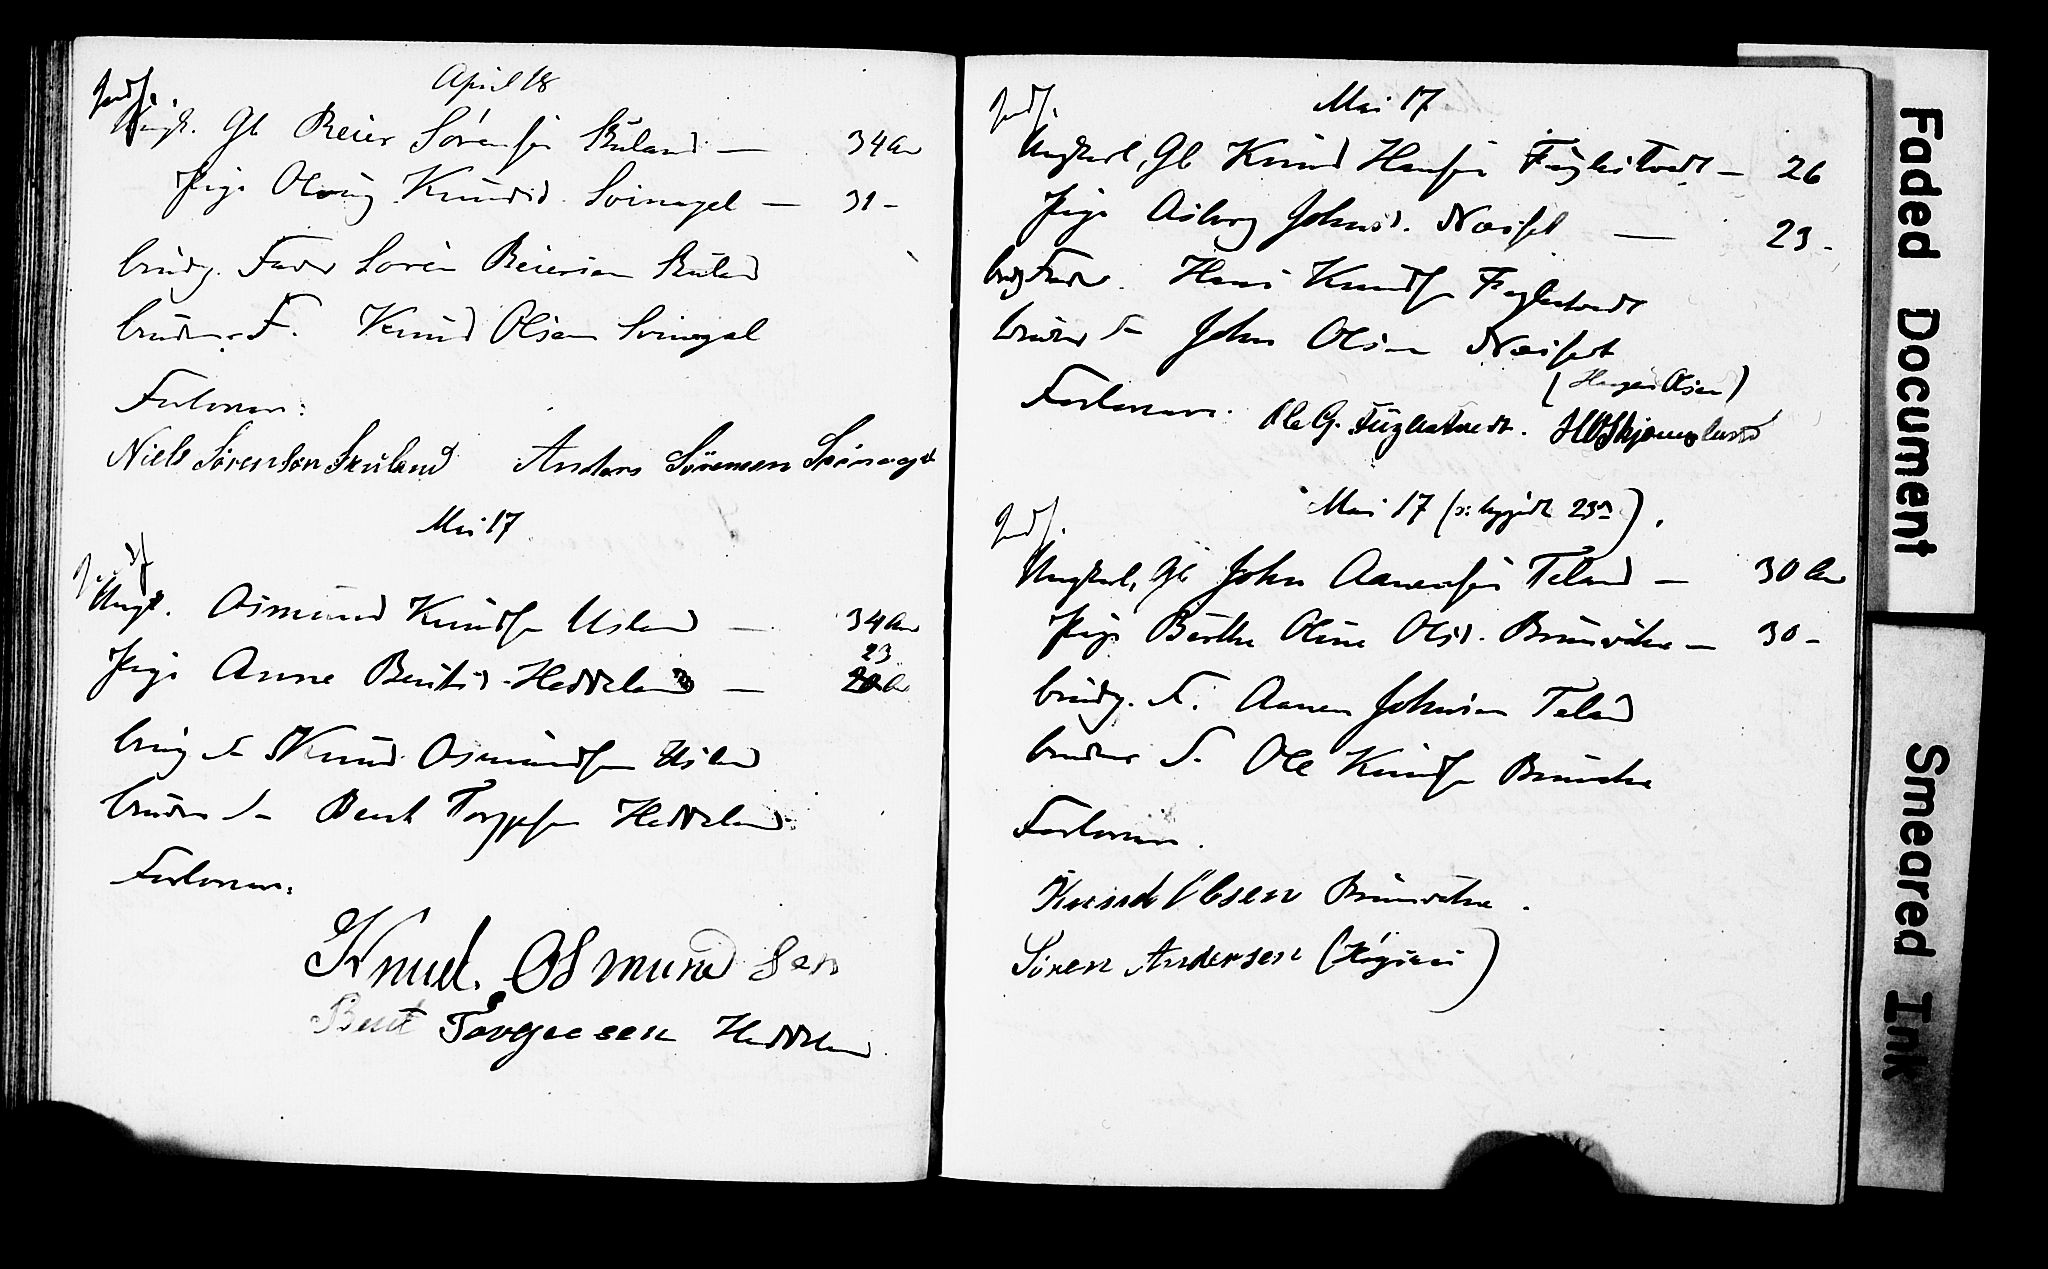 April 18
indf.
Ungk. Gb Reier Sørensen Skuland — 34 Aar
Pige Olevig Knudsd. Svinagel — 31 -
brudg. Fader Søren Reiersen Skuland
brudens F. Knud Olsen Svinagel
Forlovere:
Niels Sørenson Skuland Anders Sørensen Svinagel
Mai 17.
indf
Ungk. Osmund Knudsen Usland — 34 Aar
23
Pige Anne Bentsd. Heddeland — Aar
brudg F Knud Osmundsen Usland
brudens F Bent Torgjesen Heddeland
Forlovere:
Knud. Osmundsen
Bent Torgeesen Heddeland
Mai 17
indf.
Ungkarl, Gb Knud Hansen Fuglestvedt — 26
Pige Asborg Johnsd. — 23 -
brudg Fader. Hans Knudsen Fuglestvedt
brudens F John Olsen
(Olsen)
Forlovere: Ole G. Fuglestvedt.
Mai 17 (o: 23de).
indf.
Ungkarl, Gb John Aanensen Teland — 30 Aar
Pige Berthe Oline Olsd. Brunvatne — 30 -
brudg. F. Aanen Johnsen Teland
brudens F. Ole Knudsen Brunvatne
Forlovere.
Knud Olsen Brunvatne.
Sören Andersen ()
Faded Document
Smeared Ink